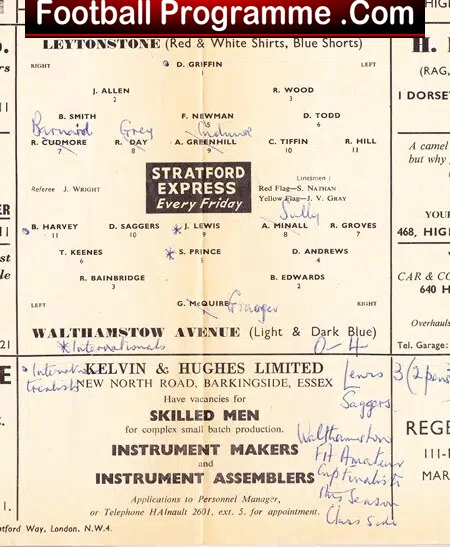 Football Programme .Com
LEYTONSTONE (Red & White Shirts, Blue Shorts)
RIGHT
D. GRIFFIN
1
LEFT
J. ALLEN
2
R. WOOD
3
B. SMITH
4
F. NEWMAN
5
D. TODD
6
Barnard Grey Cudmore
R. CUDMORE
7
R. DAY
8
A. GREENHILL
9
C. TIFFIN
10
R. HILL
11
STRATFORD
EXPRESS
Every Friday
Referee J. WRIGHT
Linesmen :
Red Flag—S. NATHAN
Yellow Flag—J. V. GRAY
Sully
B. HARVEY
11
D. SAGGERS
10
* J. LEWIS
9
A. MINALL
8
R. GROVES
7
T. KEENES
6
* S. PRINCE
5
D. ANDREWS
4
R. BAINBRIDGE
3
B. EDWARDS
2
LEFT
G. McQUIRE
RIGHT
WALTHAMSTOW AVENUE (Light & Dark Blue)
* Internationals
0-4
KELVIN & HUGHES LIMITED
NEW NORTH ROAD, BARKINGSIDE, ESSEX
Have vacancies for
SKILLED MEN
for complex small batch production.
INSTRUMENT MAKERS
and
INSTRUMENT ASSEMBLERS
Applications to Personnel Manager,
or Telephone HAInault 2601, ext. 5, for appointment.
Lewis 3 (2 pens
Saggers
Walthamstow
FA Amateur
Cup finalists
this season
tford Way, London, N.W.4.
H.
(RAG,
1 DORSE
A camel
but why
YOUR
468, HIGH
CAR & CO
640 H
Overhauls
Tel. Garage:
REGE
111-
MAR